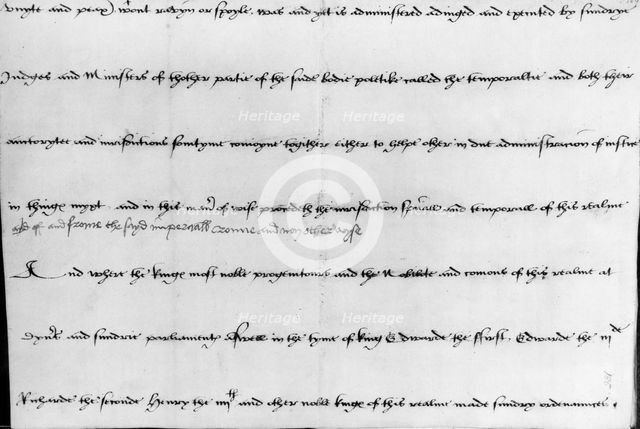 vnyte and peax without ravyn or spoyle was and yet is administered adiuged and executed by sundrye
Judges and Ministers of thother partie of the said bodie politike called the temporaltie and both their
auctorytee and iurisdictions somtyme conioyne togither either to helpe other in due administracion of iustice
in thinges myxt and in this of the iurisdiction and temporall of this realme
of and frome the sayd imperiall crowne and non otherwyse
And where the kinges most noble progenitours and the Nobilite and comons of this realme at
dyuers and sundrie parliamentes aswell in the tyme of king Edwarde the ffirst, Edwarde the iijde
Richarde the seconde Henry the iiijth and other noble kinges of this realme made sundry ordenaunces
Heritage
Heritage
Heritage
Heritage
Heritage
Heritage